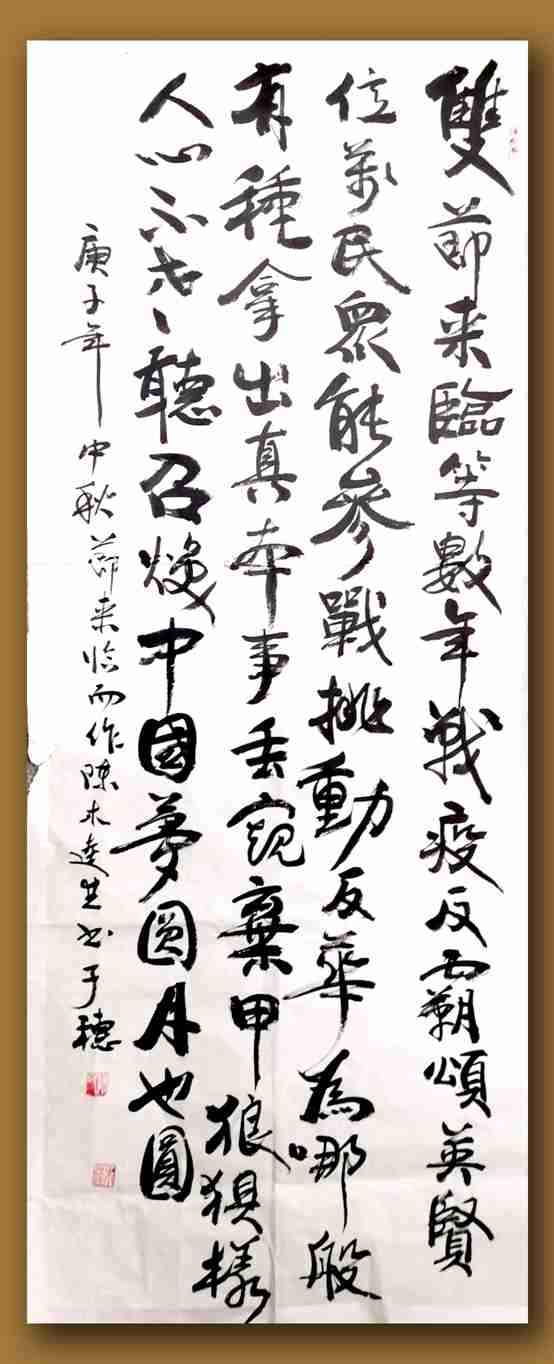 雙節来臨等數年戰疫反霸頌英賢
位萬民眾能參戰挑動反華為哪般
有種拿出真本事丢棄甲狼狽樣
人心不老聽召焕中國夢圓月也圓
庚子年中秋節来临而作陳木逹生书于穗